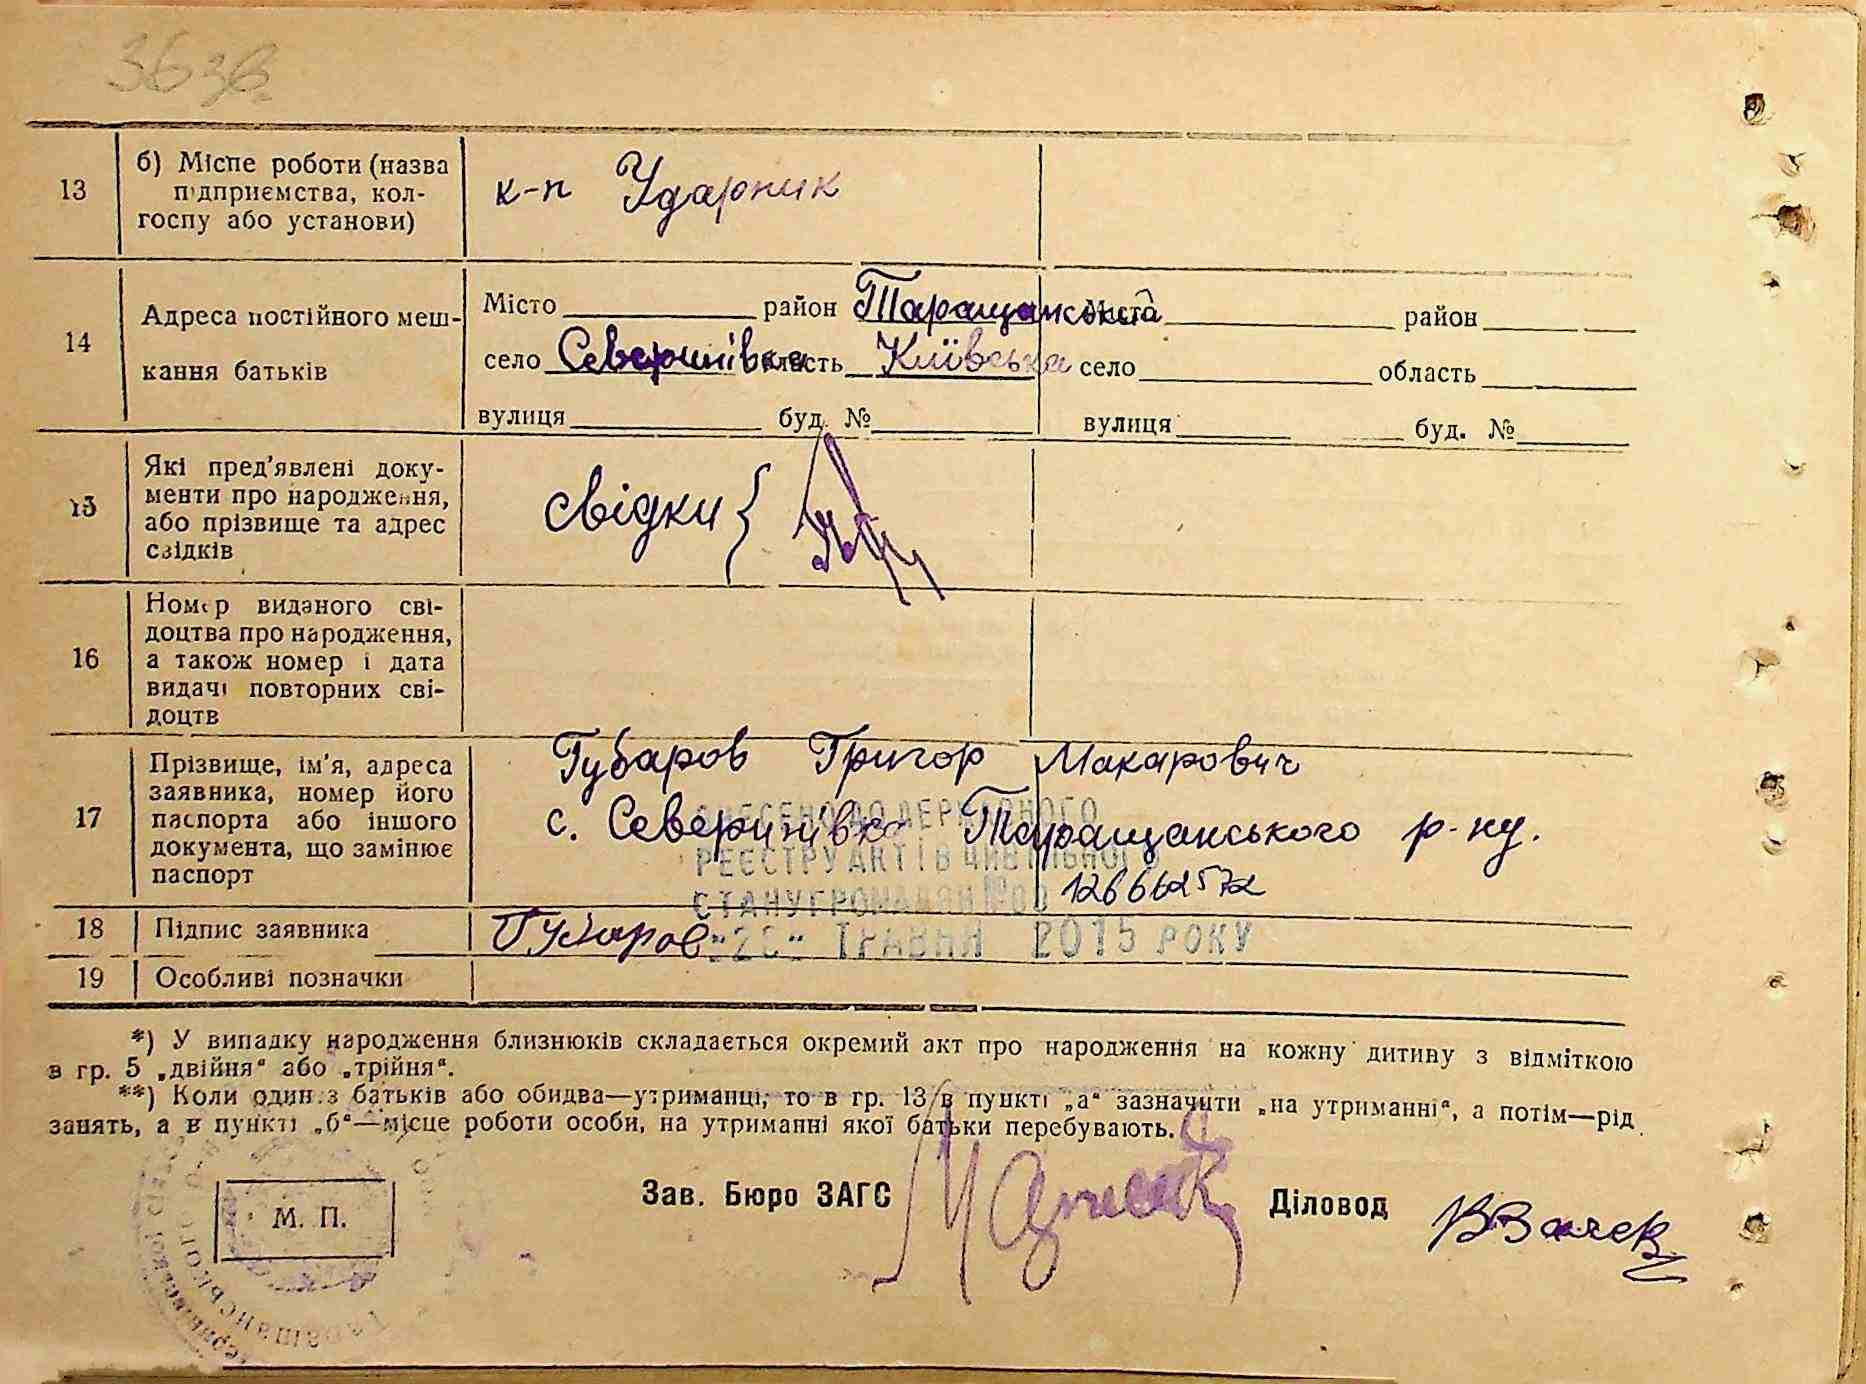 36 зв.
13
б) Місце роботи (назва
підприємства, кол-
госпу або установи)
к-п Ударник
14
Адреса постійного меш-
кання батьків
Місто район Таращанський
село Северинівка область Київська
вулиця буд. №
Місто район
село область
вулиця буд. №
15
Які пред'явлені доку-
менти про народження,
або прізвище та адрес
свідків
свідки {
16
Номер виданого сві-
доцтва про народження,
а також номер і дата
видачі повторних сві-
доцтв
17
Прізвище, ім'я, адреса
заявника, номер його
паспорта або іншого
документа, що замінює
паспорт
Губаров Григор Макарович
с. Северинівка Таращанського р-ну.
ВНЕСЕНО ДО ДЕРЖАВНОГО
РЕЄСТРУ АКТІВ ЦИВІЛЬНОГО
СТАНУ ГРОМАДЯН №00 126662572
ТРАВНЯ 2015 РОКУ
18
Підпис заявника
Губаров
19
Особливі позначки
*) У випадку народження близнюків складається окремий акт про народження на кожну дитину з відміткою
в гр. 5 „двійня“ або „трійня“.
**) Коли один з батьків або обидва—утриманці, то в гр. 13 в пункті „а“ зазначити „на утриманні“, а потім—рід
занять, а в пункті „б“—місце роботи особи, на утриманні якої батьки перебувають.
М. П.
Зав. Бюро ЗАГС
Діловод